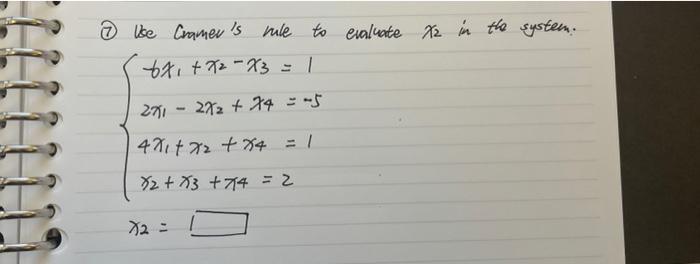 ⑦ Use Cramer's rule to evaluate x2 in the system.
-6x1 + x2 - x3 = 1
2x1 - 2x2 + x4 = -5
4x1 + x2 + x4 = 1
x2 + x3 + x4 = 2
x2 =